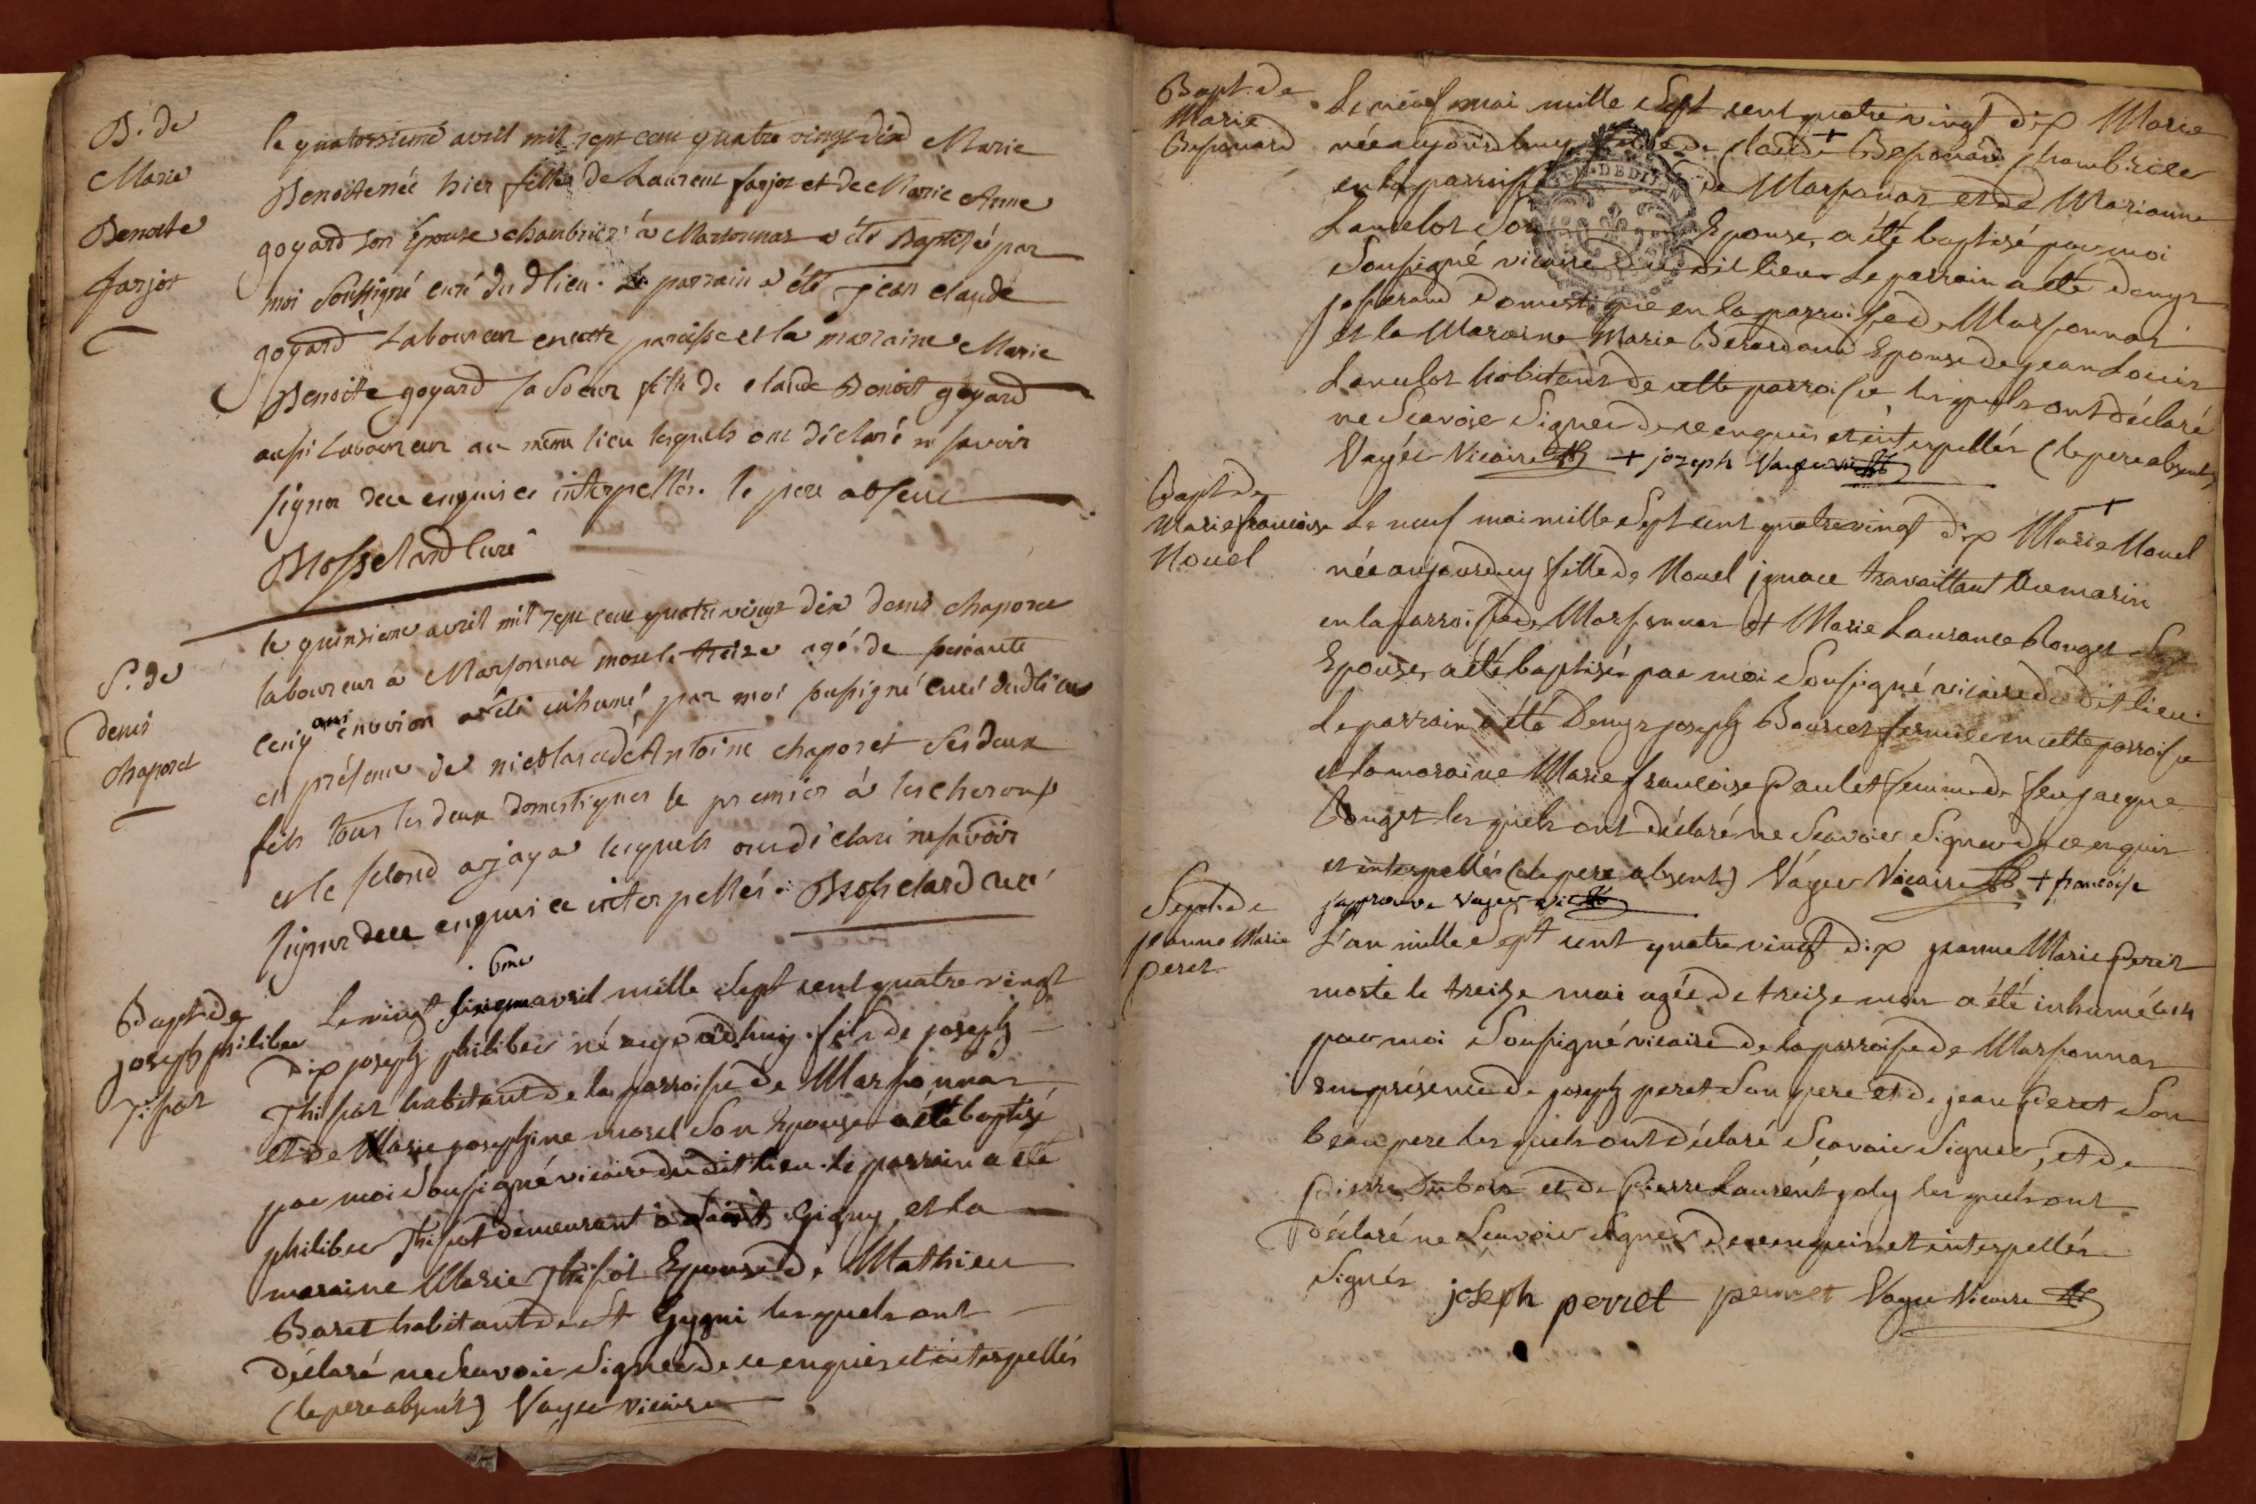 B. de
Marie
Benoite
farjot
le quatorsieme avril mil sept cent quatre vingt dix Marie
Benoite née hier fille de Laurent farjot et de Marie Anne
goyard son epouse chambrier à Marsonnas a été Baptisé par
moi soussigné curé du d lieu. Le parrain a été jean claude
goyard Laboureur en cette paroisse et la marraine Marie
Benoite goyard sa soeur fille de claude Benoit goyard
aussi Laboureur au même lieu lesquels ont déclaré ne savoir
signer de ce enquis et interpellés. le pere absent
curé
S. de
denis
chaporet
le quinsieme avril mil sept cent quatre vingt dix denis chaporet
laboureur à Marsonnas mort le treize agé de soixante
cinq ans environ a été inhumé par moi soussigné curé dud lieu
en présence de nicolas et de Antoine chaporet ses deux
fils tous les deux domestiques le premier à lescheroux
et le second a jaya lesquels ont déclaré ne savoir
signer de ce enquis et interpellés. curé
Bapt. de
joseph philiber
Thifot
6me
Le vingt avril mille sept cent quatre vingt
dix joseph philiber né aujourdhuy fils de joseph
Thifot habitant de la parroisse de Marsonnas
et de Marie josephine morel son Epouse a été baptisé
par moi soussigné vicaire du dit lieu. le parrain a été
philiber Thifot demeurant à Saint Gigny, et la
maraine Marie Thifot Epouse de Mathieu
Boret habitant de St Gygni lesquels ont
déclaré ne Scavoir Signer de ce enquis et interpellés
(le pere absent) Vayer vicaire
Bapt. de
Marie
Beponard
Le neuf mai mille Sept cent quatre vingt dix Marie
née aujourdhuy fille de claude + Beponard chambrier
en la parroisse de Marsonnas et de Marianne
Lanvelot Son Epouse, a été baptisé par moi
Soussigné vicaire du dit lieu Le parrain a été denys
joserand domestique en la parroisse de Marsonnas
et la Maraine Marie Berardand Epouse de jean Louis
Lanvelot habitants de cette parroisse lesquels ont déclaré
ne Scavoir Signer de ce enquis et interpellés (le pere absent)
Vayer Vicaire + jozeph Vayer vic
Bapt. de
Marie francoise
Nouel
Le neuf mai mille Sept cent quatre vingt dix Marie + Nouel
née aujourdhuy fille de Nouel jgnace travaillant
en la parroisse de Marsonnas et Marie Laurance Rouget Son
Epouse, a été baptisée par moi Soussigné vicaire du dit lieu
Le parrain a été Denys joseph Bourcet fermier en cette parroisse
et la maraine Marie francoise Paulet femme de feu jacque
Rouget lesquels ont déclaré ne Scavoir Signer de ce enquis
et interpellés (le pere absent) Vayer Vicaire + francoise
japprouve Vayer vic
Sepul. de
jeanne Marie
peret
L'an mille Sept cent quatre vingt dix jeanne Marie peret
morte le treize mai agée de treize mois a été inhumé le 14
par moi Soussigné vicaire de la parroisse de Marsonnas
en présence de joseph peret Son pere et de jean peret Son
beau pere lesquels ont déclaré Scavoir Signer, et de
pierre Dubois et de pierre Laurent joly lesquels ont
déclaré ne Scavoir Signer de ce enquis et interpellés
Signés joseph perret perret Vayer Vicaire